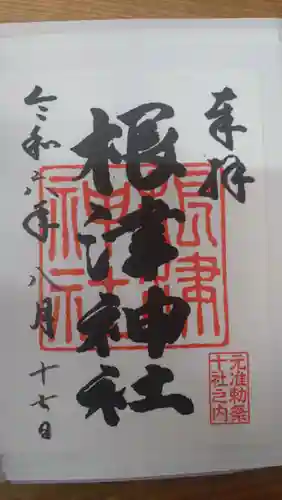 奉拝
根津神社
令和六年八月十七日
根津神社
元准勅祭
十社之内